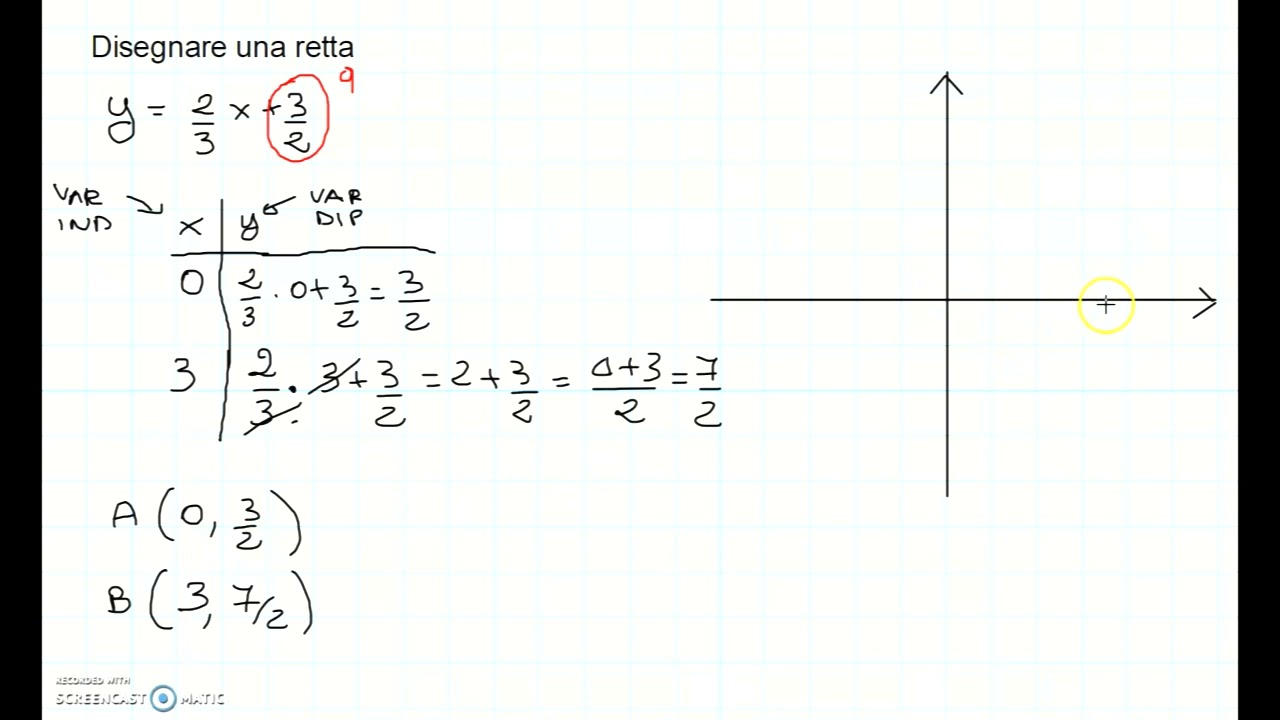 Disegnare una retta
y = 2/3 x + 3/2 q
VAR IND x y VAR DIP
0 2/3 · 0 + 3/2 = 3/2
3 2/3 · 3 + 3/2 = 2 + 3/2 = 4+3/2 = 7/2
A (0, 3/2)
B (3, 7/2)
RECORDED WITH
SCREENCAST MATIC